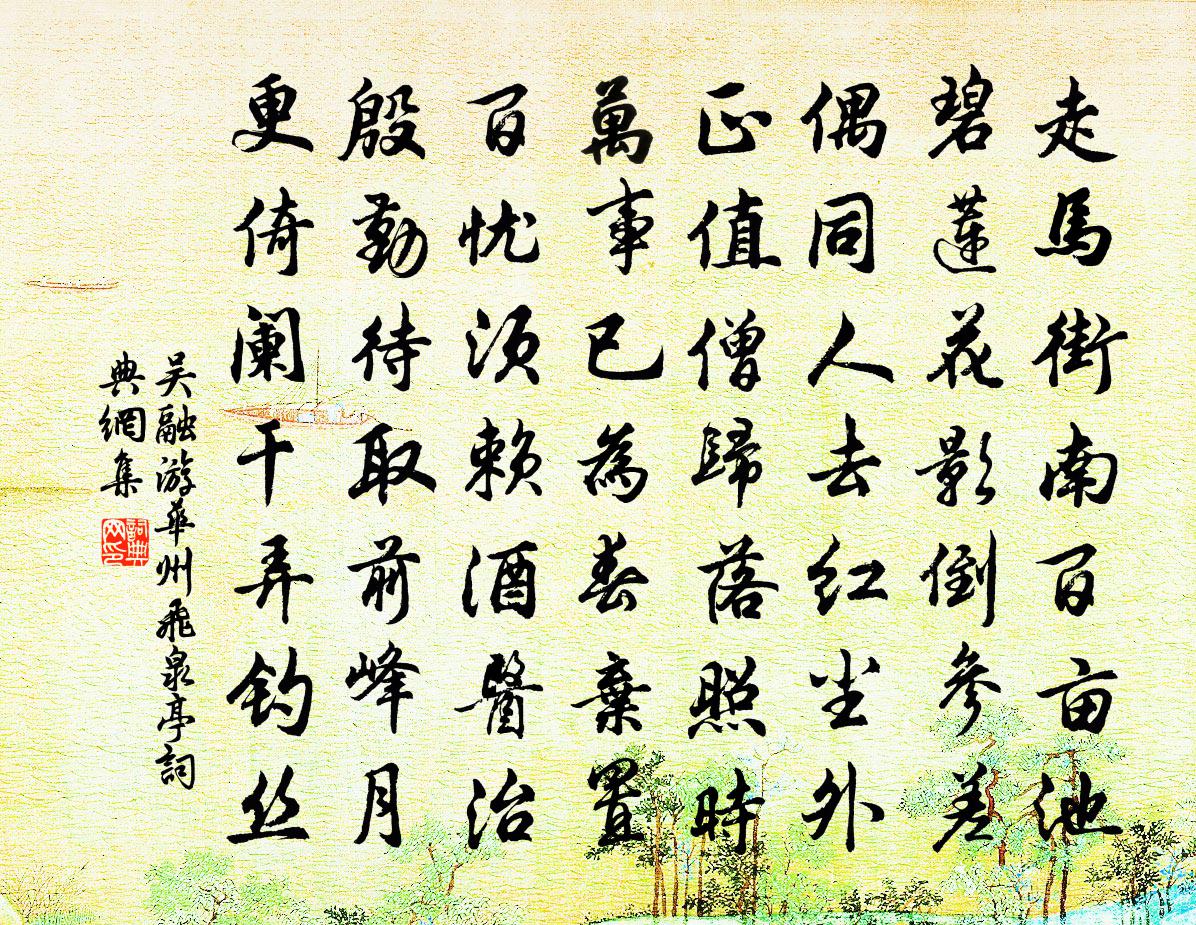 走馬街南百亩池
碧蓮花影倒參差
偶同人去红尘外
正值僧歸落照時
萬事已為春棄置
百忧须赖酒醫治
殷勤待取前峰月
更倚阑干弄钓丝
吴融游華州飛泉亭詞
典網集
詞典網印